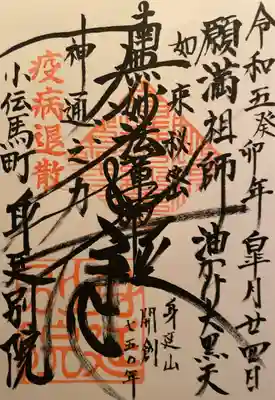 令和五癸卯年皐月廿四日
願満祖師 油かけ大黒天
如来秘密
南無妙法蓮華経
神通之力
疫病退散
身延山
開創
七五〇年
小伝馬町 身延別院